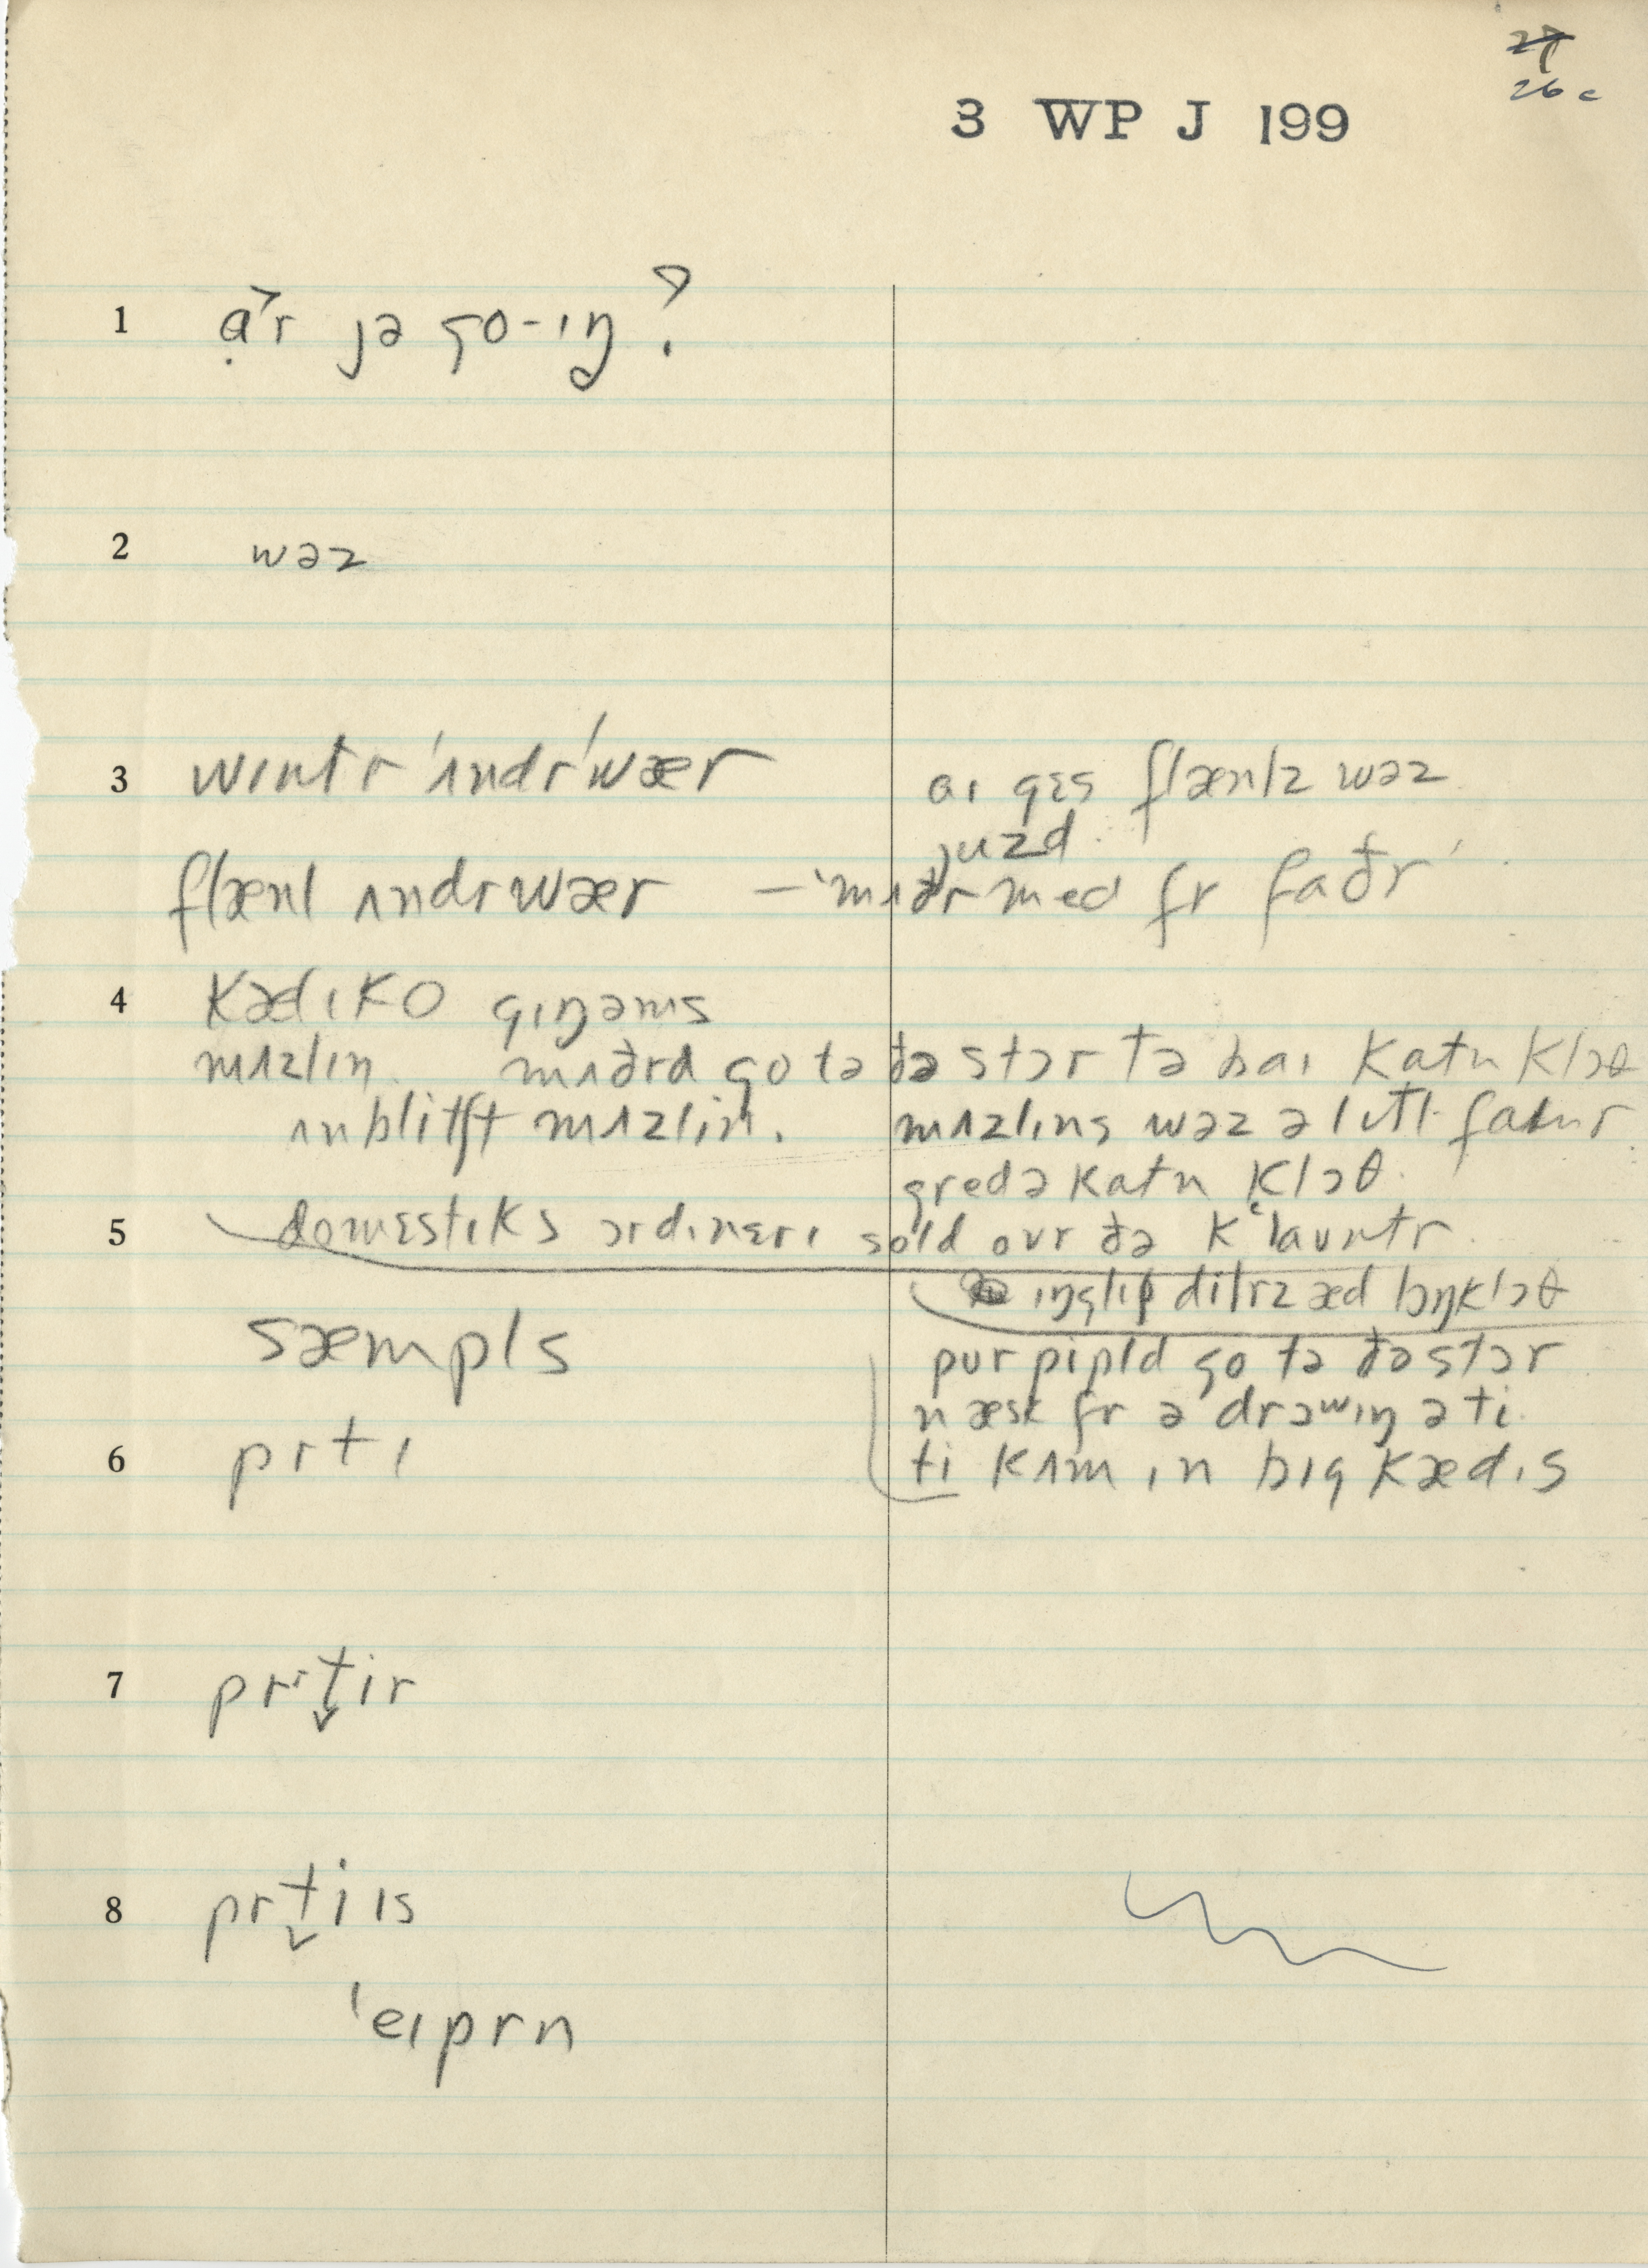 27
26c
3 WP J 199
1 ɑ̣˃r jə go-ɪŋ?
2 wəz
3 wɪntr ˈʌndrˈwær
aɪ gɛs flænlz wəz
juzd
flænl ʌndrwær — ˈmʌðr med fr faðr
4 kælɪko gɪŋəms
mʌzlɪn. mʌðrd go tə ðə stɔr tə baɪ katn klɔθ
ʌnblitʃt mʌzlɪn. mʌzlɪns wəz ə lɪtl faɪnr
gredə katn klɔθ.
5 domɛstɪks ɔrdɪnɛrɪ sold ovr ðə kʻaʊntr
ɪŋglɪʃ dilrz æd lɔŋklɔθ
sæmpls
pur pipld go tə ðə stɔr
næsk fr ə drɔwɪŋ ə ti.
6 prtɪ
ti kʌm ɪn bɪg kædɪs
7 prɪt̬ir
8 prt̬iɪs
ˈeɪprn